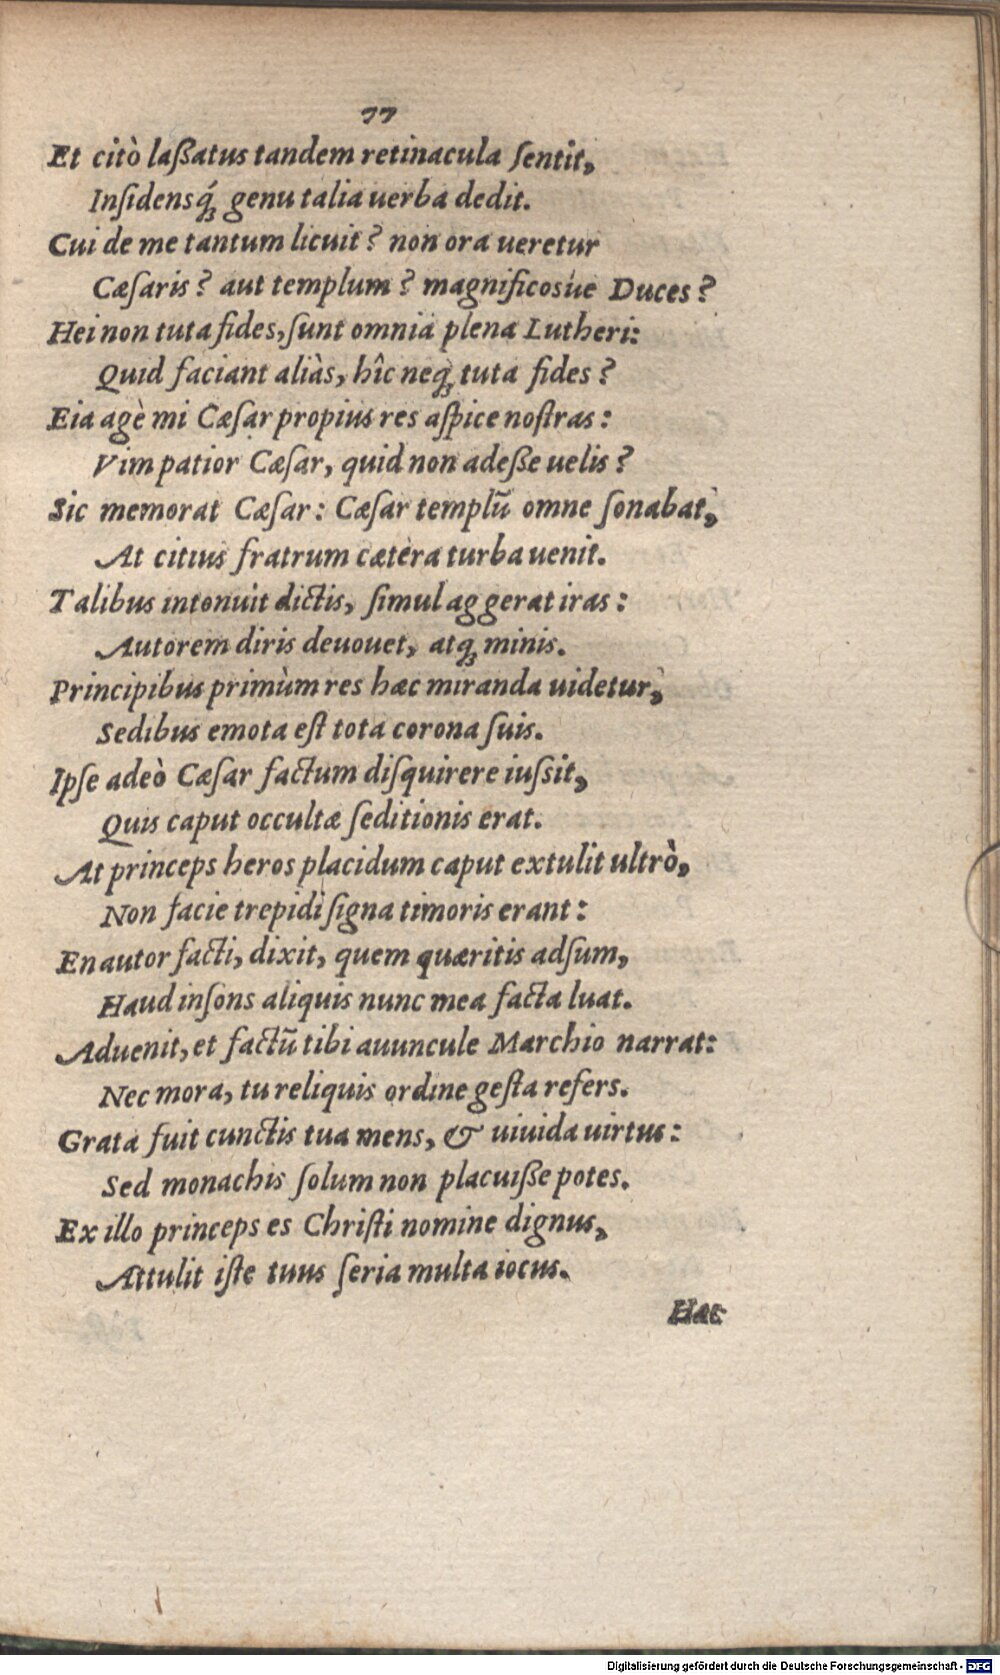 77
Et citò laßatus tandem retinacula ſentit,
Inſidensq́; genu talia uerba dedit.
Cui de me tantum licuit? non ora ueretur
Cæſaris? aut templum? magnificosúe Duces?
Hei non tuta fides, ſunt omnia plena Lutheri:
Quid faciant aliàs, hîc neq; tuta fides?
Eia agè mi Cæſar propius res aſpice noſtras:
Vim patior Cæſar, quid non adeße uelis?
Sic memorat Cæſar: Cæſar templũ omne ſonabat,
At citius fratrum cætera turba uenit.
Talibus intonuit dictis, ſimul aggerat iras:
Autorem diris deuouet, atq; minis.
Principibus primùm res hæc miranda uidetur,
Sedibus emota eſt tota corona ſuis.
Ipſe adeò Cæſar factum diſquirere iuſsit,
Quis caput occultæ ſeditionis erat.
At princeps heros placidum caput extulit ultrò,
Non facie trepidi ſigna timoris erant:
En autor facti, dixit, quem quæritis adſum,
Haud inſons aliquis nunc mea facta luat.
Aduenit, et factũ tibi auuncule Marchio narrat:
Nec mora, tu reliquis ordine geſta refers.
Grata fuit cunctis tua mens, & uiuida uirtus:
Sed monachis ſolum non placuiße potes.
Ex illo princeps es Chriſti nomine dignus,
Attulit iſte tuus ſeria multa iocus.
Hac
Digitalisierung gefördert durch die Deutsche Forschungsgemeinschaft - DFG